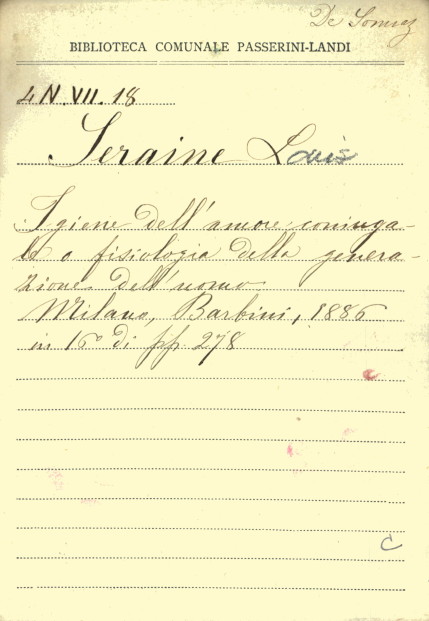 De Somez
BIBLIOTECA COMUNALE PASSERINI-LANDI
4 N. VII. 18
Seraine Louis
Igiene dell'amore coniuga-
le o fisiologia della genera-
zione dell'uomo
Milano, Barbini, 1886
in 16° di pp 278
C